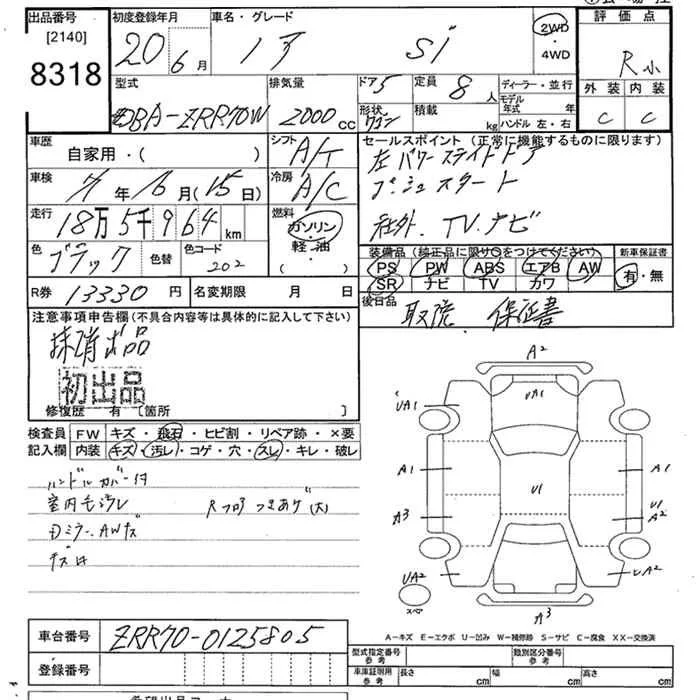 出品番号
[2140]
8318
初度登録年月
20年6月
車名・グレード
Si
2WD
・
4WD
評価点
R小
外装 内装
C C
型式
DBA-ZRR70W
排気量
2000cc
ドア 5
形状 ワゴン
定員 8人
積載 kg
ディーラー・並行
モデル年式 年
ハンドル 左・右
車歴
自家用・( )
シフト
A/T
車検
年6月(15日)
冷房
A/C
走行
18万5千964km
燃料
ガソリン・
軽・油
( )
色
ブラック
色替
色コード
202
R券 13330円
名変期限 月 日
セールスポイント (正常に機能するものに限ります)
左パワースライドドア
プッシュスタート
社外.TV.ナビ
装備品(純正品に限り○をつけてください)
新車保証書
PS PW ABS エアB AW
SR ナビ TV カワ
有・無
後日品
取説.保証書
注意事項申告欄(不具合内容等は具体的に記入して下さい)
抹消出品
初出品
修復歴 有 〔箇所 〕
検査員 FW キズ・飛石・ヒビ割・リペア跡・×要
記入欄 内装 キズ・汚レ・コゲ・穴・スレ・キレ・破レ
ハンドルカバー付
室内毛汚レ
Rフロアつきあげ(大)
Dミラー.AWキズ
A2
UA1
UA1
A1
A1
U1
U1
A3
A2
UA2
UA2
スペア
A3
A-キズ E-エクボ U-凹み W-補修跡 S-サビ C-腐食 XX-交換済
車台番号 ZRR70-0125805
登録番号
型式指定番号
参考
類別区分番号
参考
車庫証明用
参考
長さ cm 幅 cm 高さ cm